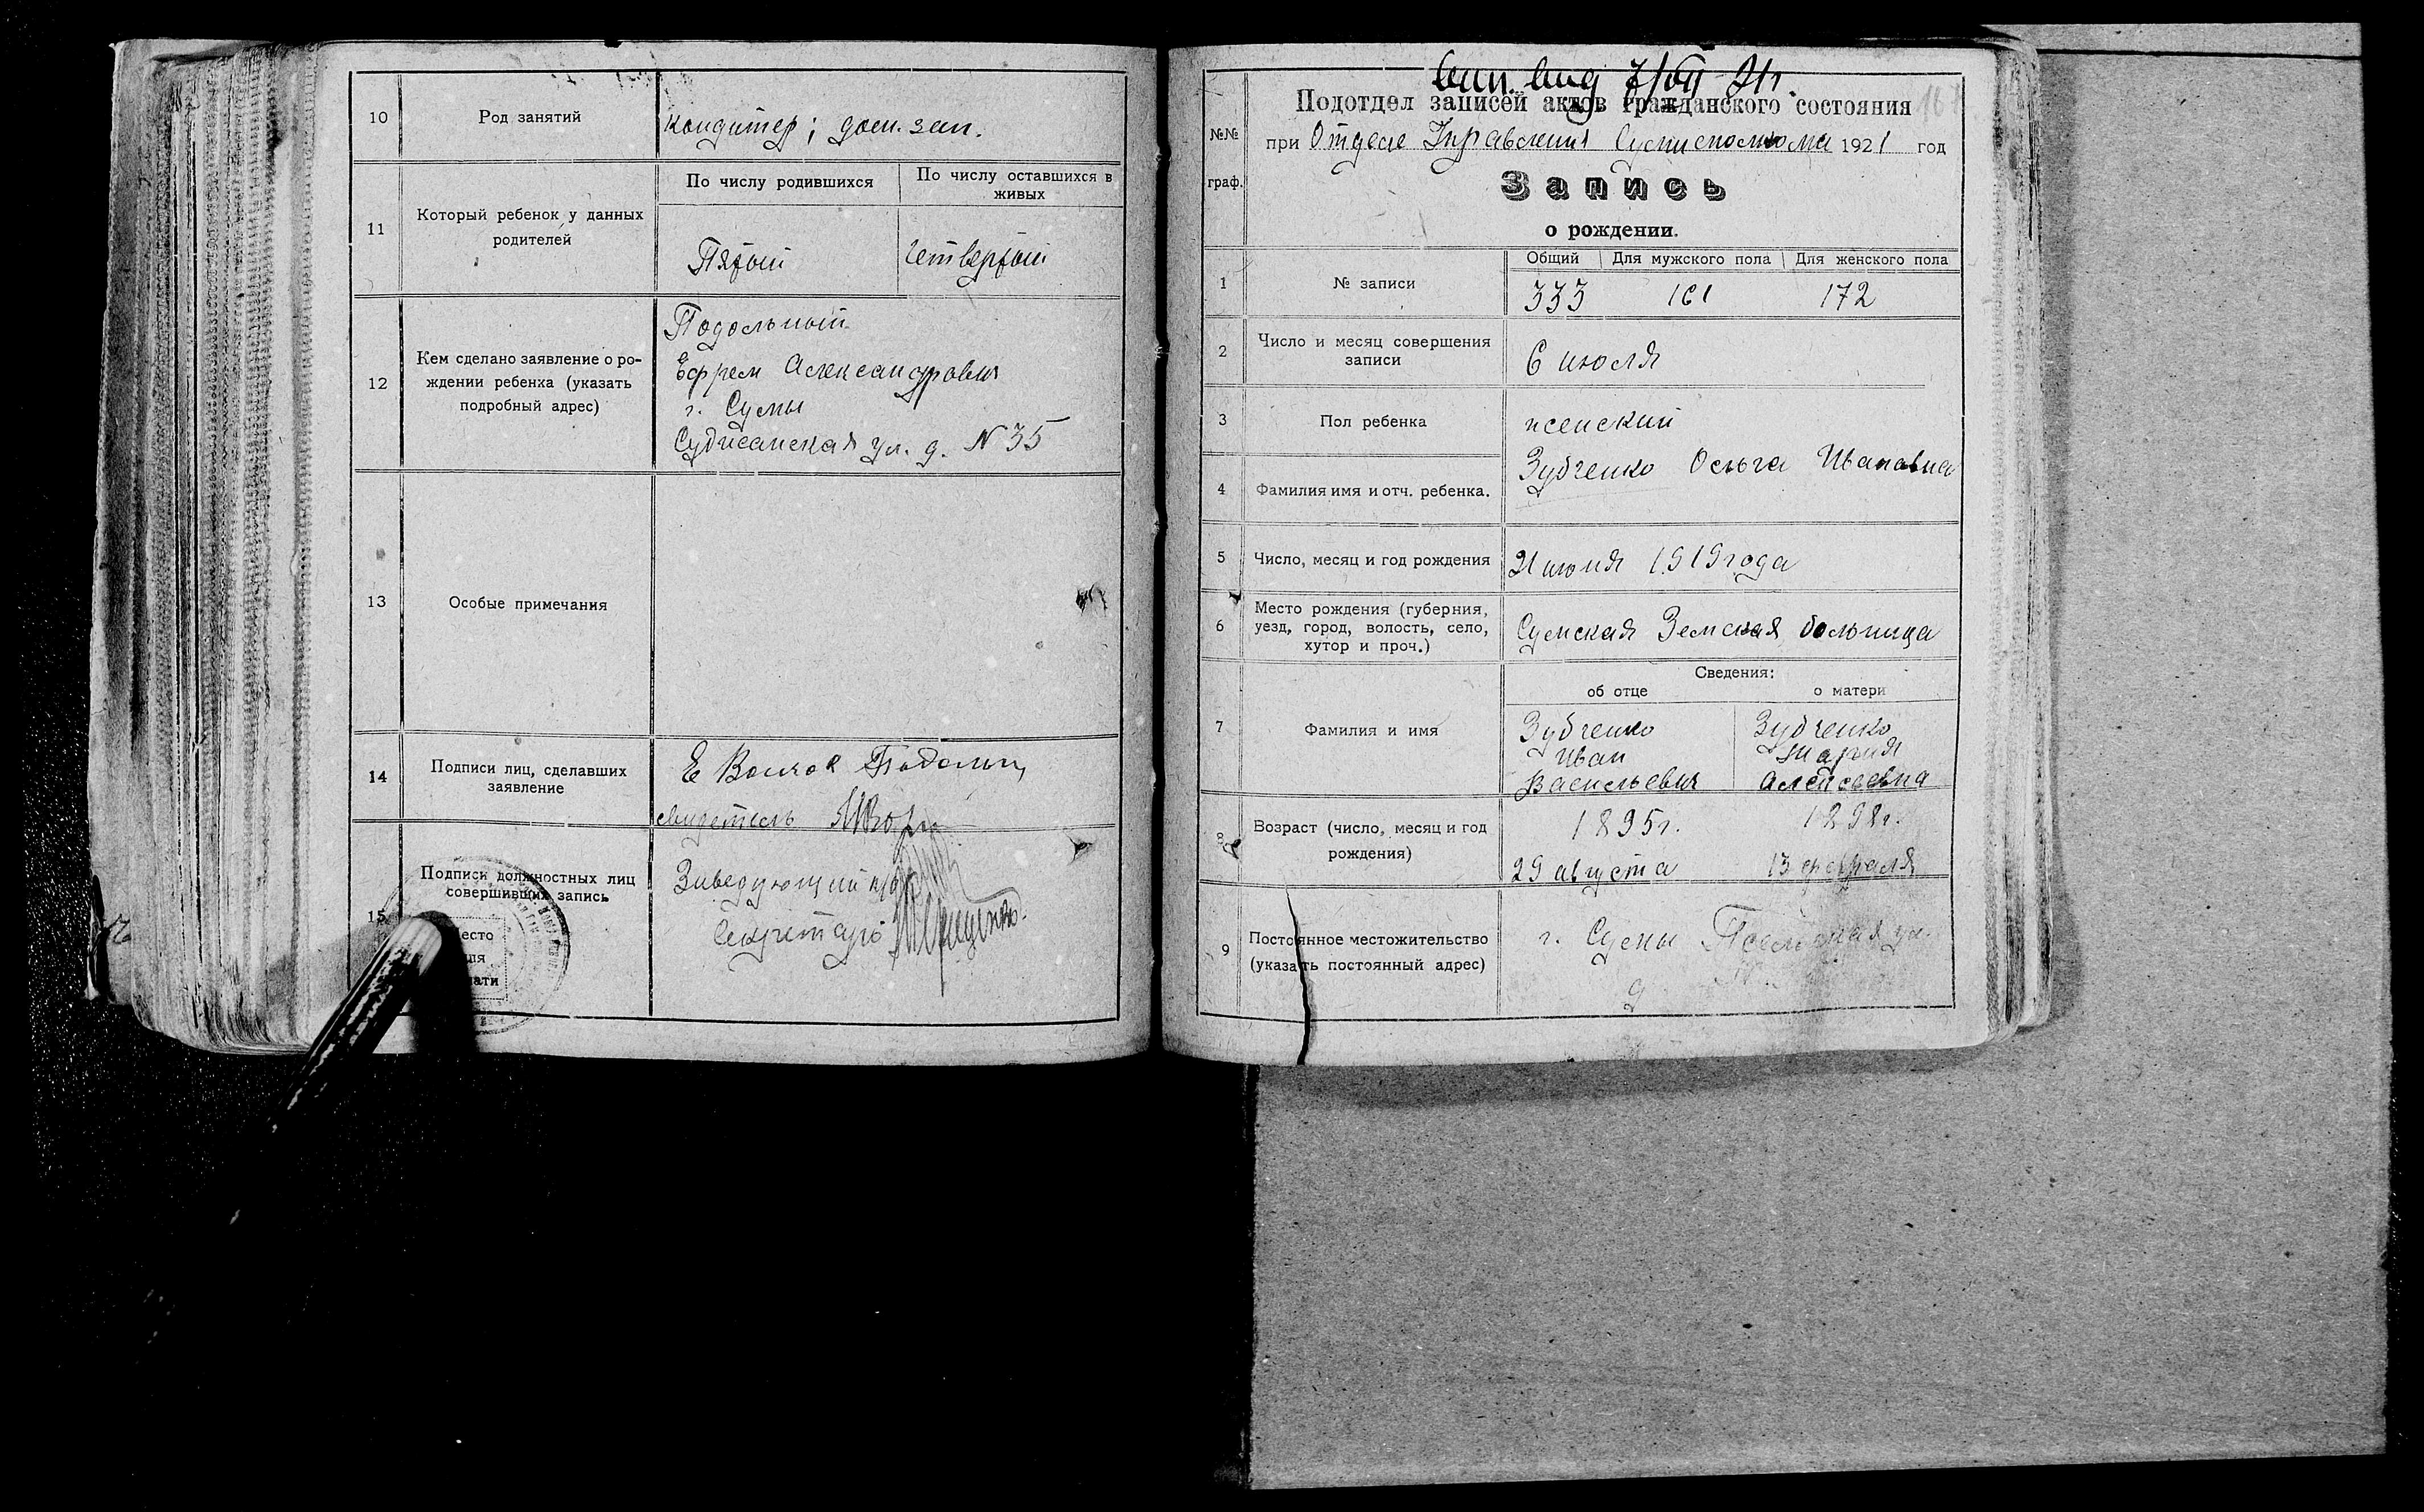 10
Род занятий
кондитер; дом. зан.
11
Который ребенок у данных
родителей
По числу родившихся
По числу оставшихся в
живых
Пятый
Четвертый
12
Кем сделано заявление о ро-
ждении ребенка (указать
подробный адрес)
Подольный
Ефрем Александрович
г. Сумы
ул. д. №35
13
Особые примечания
14
Подписи лиц, сделавших
заявление
Е
свидетель
15
Подписи должностных лиц
совершивших запись
Заведующий
Секретарь
7/VII 21г.
Подотдел записей актов гражданского состояния
167
№№
граф.
при Отделе Управления 1921 год
Запись
о рождении.
1
№ записи
Общий
Для мужского пола
Для женского пола
333 161 172
2
Число и месяц совершения
записи
6 июля
3
Пол ребенка
женский
4
Фамилия имя и отч. ребенка.
Зубченко Ольга Ивановна
5
Число, месяц и год рождения
21 июня 1919 года
6
Место рождения (губерния,
уезд, город, волость, село,
хутор и проч.)
Сумская Земская больница
Сведения:
об отце
о матери
7
Фамилия и имя
Зубченко
Иван
Васильевич
Зубченко
Мария
Алексеевна
8
Возраст (число, месяц и год
рождения)
1895г.
29 августа
1898г.
13 февраля
9
Постоянное местожительство
(указать постоянный адрес)
г. Сумы ул.